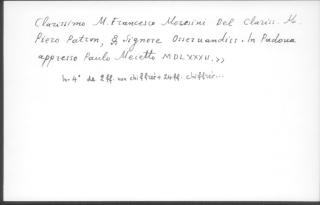 Clarissimo M. Francesco Morosini Del Clariss. M.
Piero Patron, & Signore Osseruandiss. In Padoua
appresso Paulo Meietto MDLXXXII.>>
In-4° de 2 ff. non chiffrés + 24 ff. chiffrés...